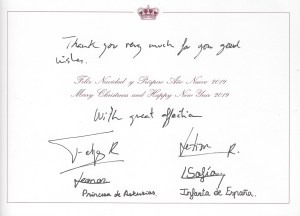 Thank you very much for you good
wishes.
Feliz Navidad y Próspero Año Nuevo 2019
Merry Christmas and Happy New Year 2019
With great affection
Felipe R. Letizia R.
Leonor Sofía
Princesa de Asturias. Infanta de España.